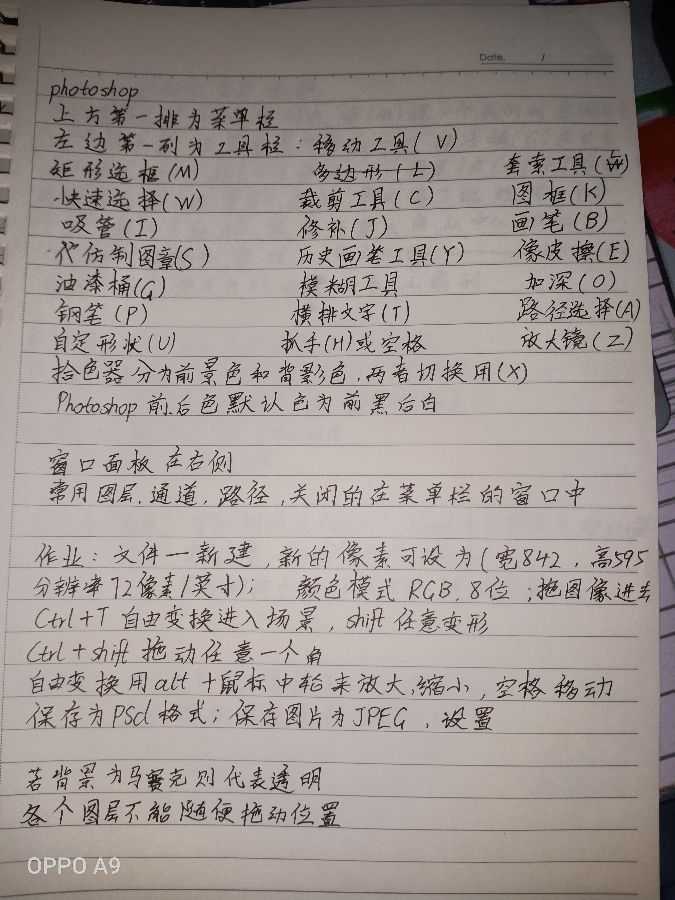 Date.      /
photoshop
上方第一排为菜单栏
左边第一列为工具栏：移动工具(V)
矩形选框(M) 多边形(L) 套索工具(W)
快速选择(W) 裁剪工具(C) 图框(K)
吸管(I) 修补(J) 画笔(B)
代仿制图章(S) 历史画笔工具(Y) 像皮擦(E)
油漆桶(G) 模糊工具 加深(O)
钢笔(P) 横排文字(T) 路径选择(A)
自定形状(U) 抓手(H)或空格 放大镜(Z)
拾色器分为前景色和背影色，两者切换用(X)
Photoshop前后色默认色为前黑后白
窗口面板在右侧
常用图层，通道，路径，关闭的在菜单栏的窗口中
作业：文件一新建，新的像素可设为(宽842，高595
分辨率72像素/英寸)； 颜色模式RGB，8位；拖图像进去
Ctrl+T自由变换进入场景，shift任意变形
Ctrl+shift拖动任意一个角
自由变换用alt+鼠标中轮来放大，缩小，空格移动
保存为PSd格式；保存图片为JPEG，设置
若背景为马赛克则代表透明
各个图层不能随便拖动位置
OPPO A9